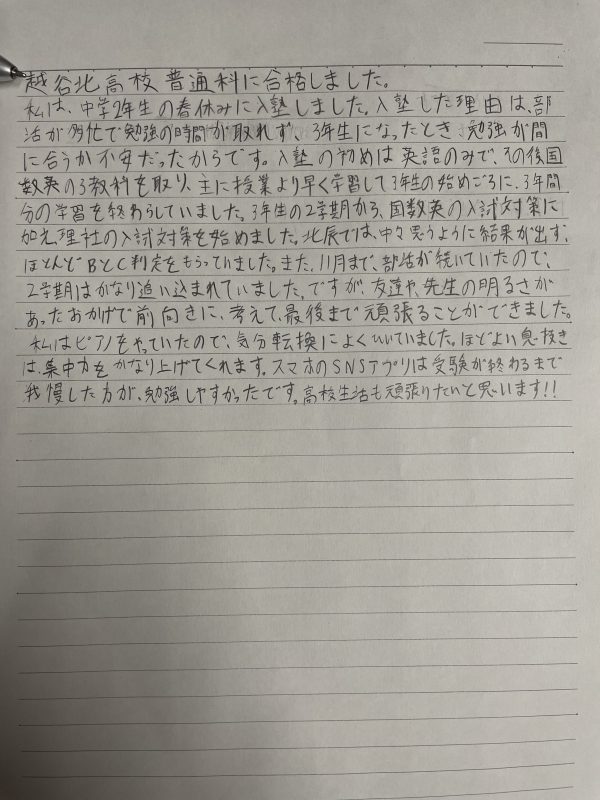 越谷北高校 普通科に合格しました。
私は、中学2年生の春休みに入塾しました。入塾した理由は、部
活が多忙で勉強の時間が取れず、3年生になったとき、勉強が間
に合うか不安だったからです。入塾の初めは英語のみで、その後国
数英の3教科を取り、主に授業より早く学習して3年生の始めごろに、3年間
分の学習を終わらしていました。3年生の2学期から、国数英の入試対策に
加え理社の入試対策を始めました。北辰では、中々思うように結果が出ず、
ほとんどBとC判定をもらっていました。また、11月まで、部活が続いていたので、
2学期はかなり追い込まれていました。ですが、友達や、先生の明るさが
あったおかげで前向きに、考えて、最後まで頑張ることができました。
私はピアノをやっていたので、気分転換によくひいていました。ほどよい息抜き
は、集中力をかなり上げてくれます。スマホのSNSアプリは受験が終わるまで
我慢した方が、勉強しやすかったです。高校生活も頑張りたいと思います!!